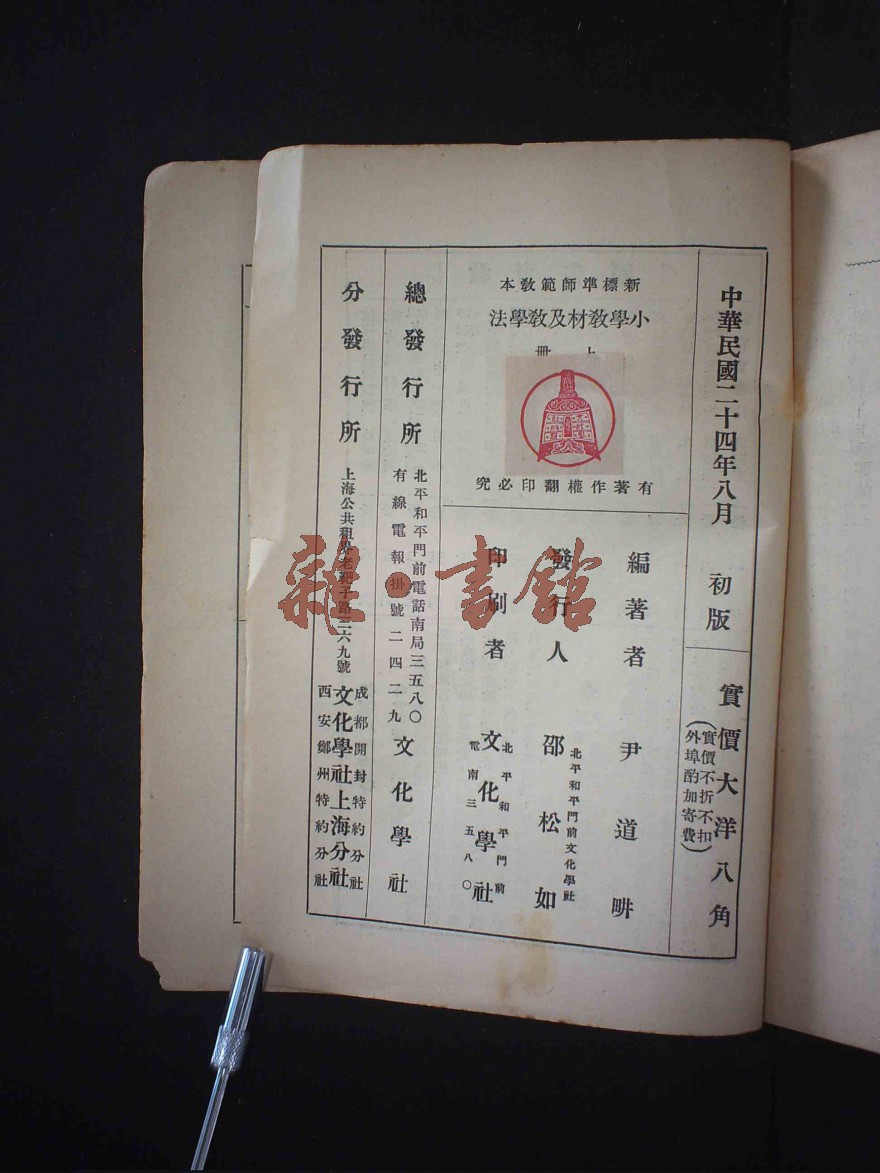 中華民國二十四年八月 初版
實價大洋八角
(實價不折不扣
外埠酌加寄費)
新標準師範教本
小學教材及教學法
上冊
有著作權翻印必究
編著者 尹道畊
發行人 邵松如
北平和平門前文化學社
印刷者 文化學社
北平和平門前
電南三五八〇
總發行所
北平和平門前電話南局三五八〇
有線電報掛號二四二九
文化學社
分發行所
上海公共租界老靶子路三六九號
成都開封特約分社
文化學社上海分社
西安鄭州特約分社
雜·書館